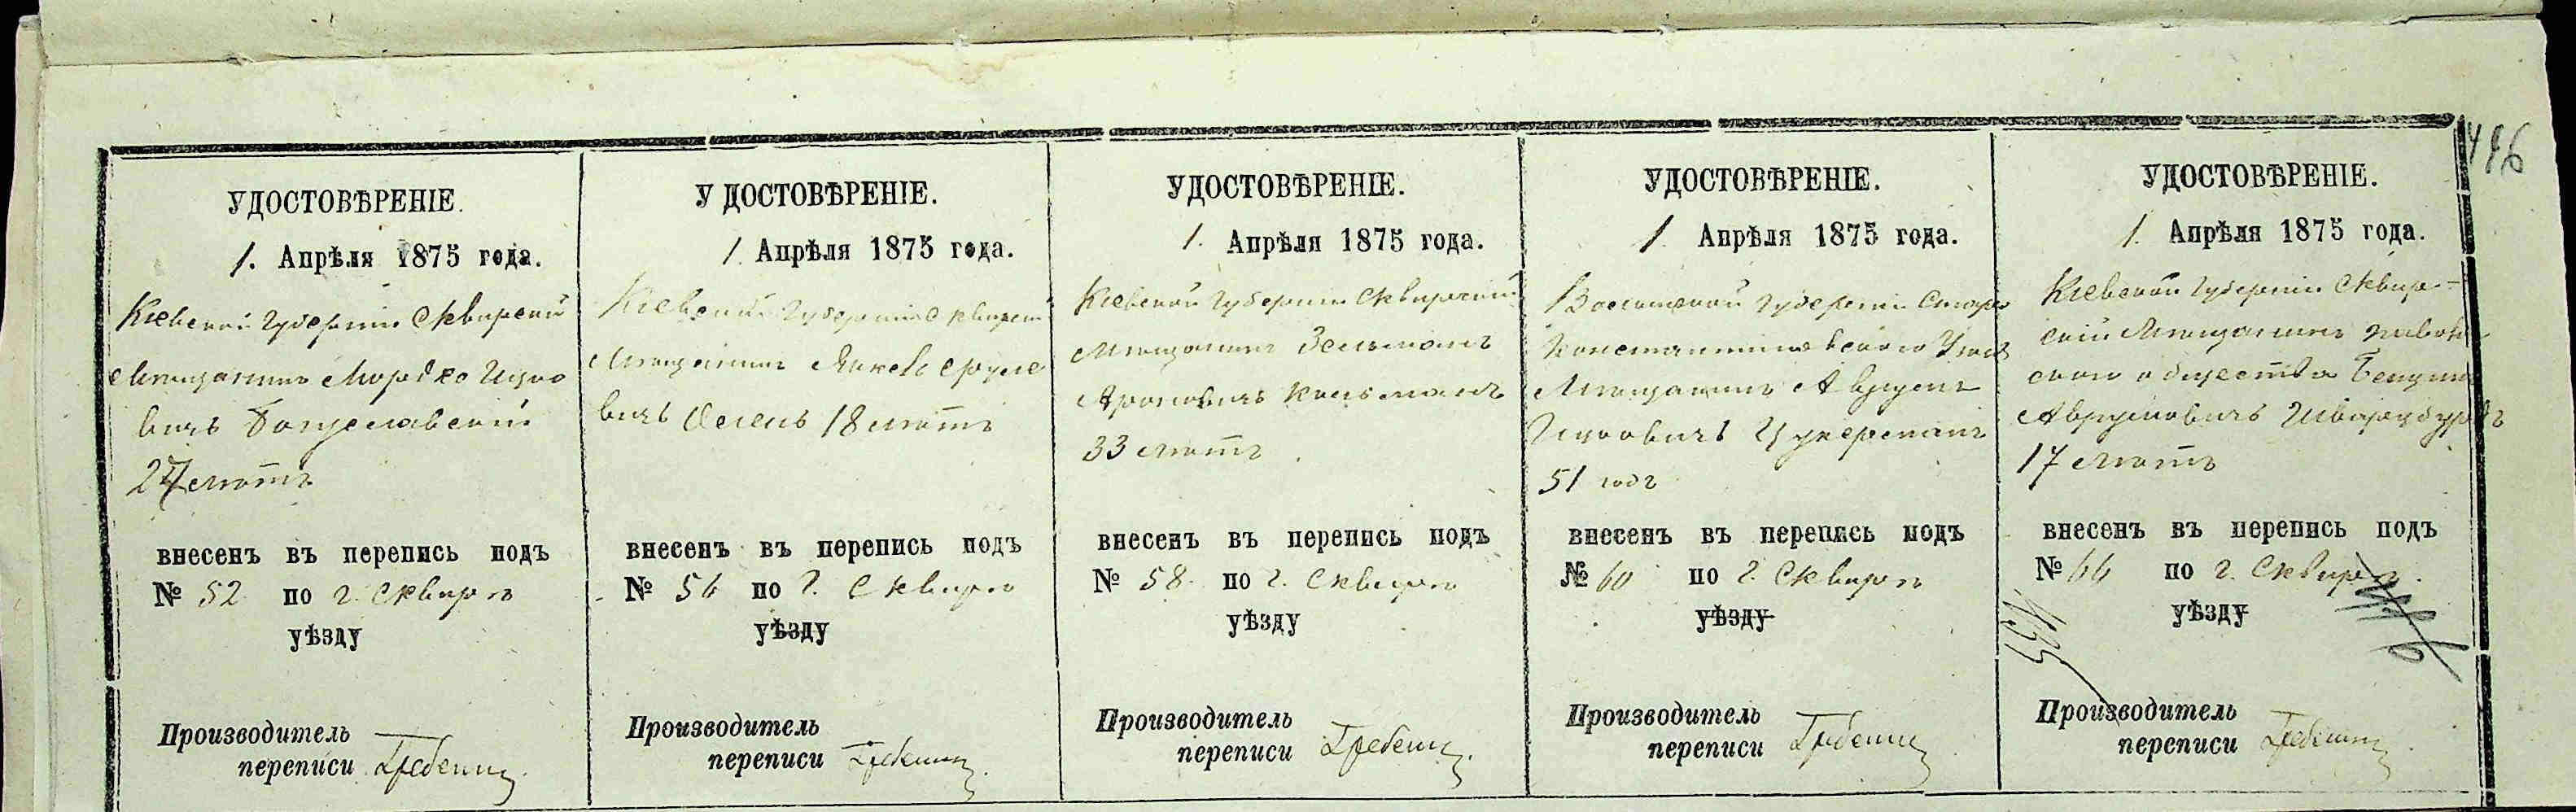 486
УДОСТОВѢРЕНІЕ.
1. Апрѣля 1875 года.
Кіевской Губерніи Сквирскій
Мѣщанинъ Мордко Ицко
вичъ Богуславскій
27 лѣтъ
внесенъ въ перепись подъ
№ 52 по г. Сквирѣ
уѣзду
Производитель
переписи
УДОСТОВѢРЕНІЕ.
1. Апрѣля 1875 года.
Кіевской Губерніи Сквирскій
Мѣщанинъ Янкель Сруле
вичъ 18 лѣтъ
внесенъ въ перепись подъ
№ 56 по г. Сквирѣ
уѣзду
Производитель
переписи
УДОСТОВѢРЕНІЕ.
1. Апрѣля 1875 года.
Кіевской Губерніи Сквирскій
Мѣщанинъ Зельманъ
Ароновичъ Кольманъ
33 лѣтъ
внесенъ въ перепись подъ
№ 58 по г. Сквирѣ
уѣзду
Производитель
переписи
УДОСТОВѢРЕНІЕ.
1 Апрѣля 1875 года.
Волынской Губерніи Старо
константиновского Уѣзда
Мѣщанинъ Аврумъ
Ицковичъ Цукерманъ
51 годъ
внесенъ въ перепись подъ
№ 60 по г. Сквирѣ
уѣзду
Производитель
переписи
УДОСТОВѢРЕНІЕ.
1. Апрѣля 1875 года.
Кіевской Губерніи Сквир-
скій Мѣщанинъ
ского общества
Аврумовичъ Шварцбурдъ
17 лѣтъ
внесенъ въ перепись подъ
№ 66 по г. Сквирѣ
уѣзду
Производитель
переписи